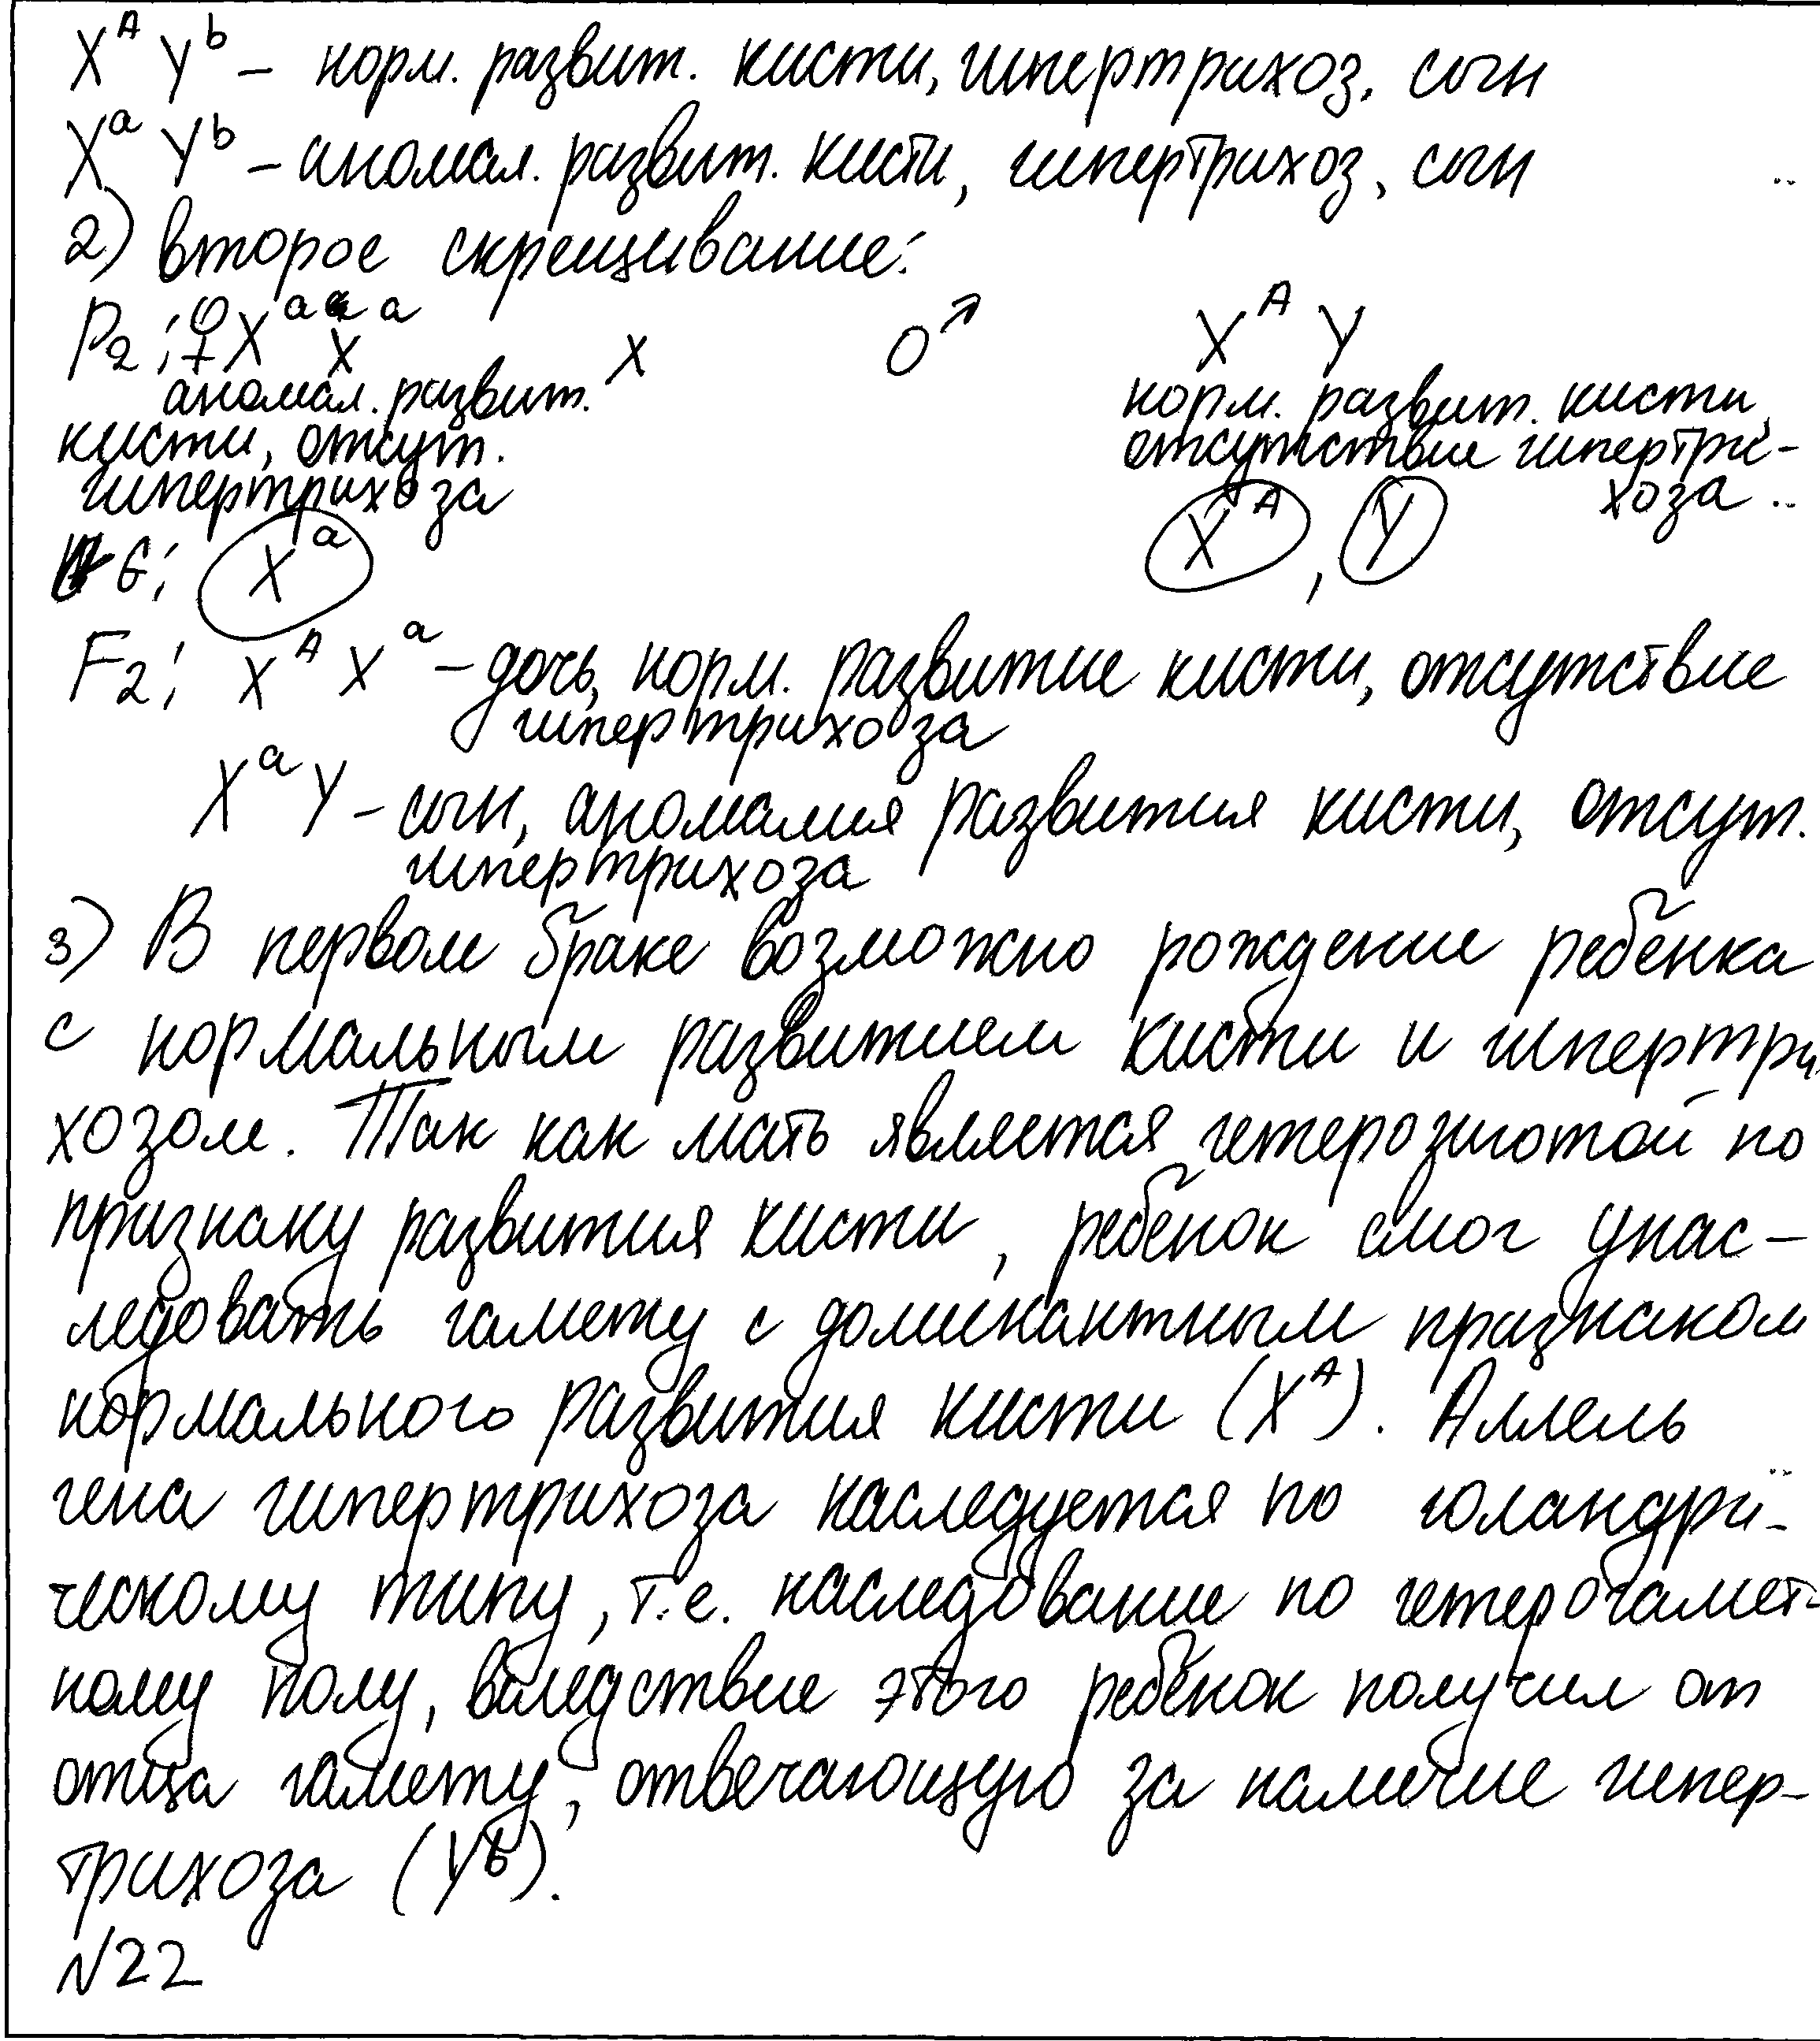 X^A Y^b – норм. развит. кисти, гипертрихоз, сын
X^a Y^b – аномал. развит. кисти, гипертрихоз, сын
2) второе скрещивание:
P2: ♀ X^a X^a x ♂ X^A Y
аномал. развит. норм. развит. кисти,
кисти, отсут. отсутствие гипертри-
гипертрихоза хоза
G: X^a X^A, Y
F2: X^A X^a – дочь, норм. развитие кисти, отсутствие
гипертрихоза
X^a Y – сын, аномалия развития кисти, отсут.
гипертрихоза
3) В первом браке возможно рождение ребёнка
с нормальным развитием кисти и гипертри
хозом. Так как мать является гетерозиготой по
признаку развития кисти, ребёнок смог унас-
ледовать гамету с доминантным признаком
нормального развития кисти (X^A). Аллель
гена гипертрихоза наследуется по голандри-
ческому типу, т.е. наследование по гетерогамет-
ному полу, вследствие этого ребёнок получил от
отца гамету, отвечающую за наличие гипер-
трихоза (Y^b).
№22